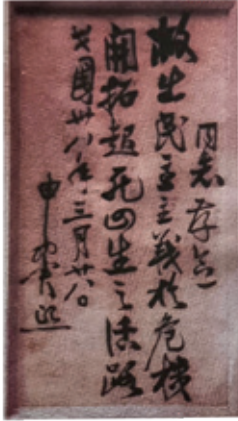 同志存念
救出民主主義於危機
開拓超死回生之活路
英園卅八年三月廿八日
申翼熙